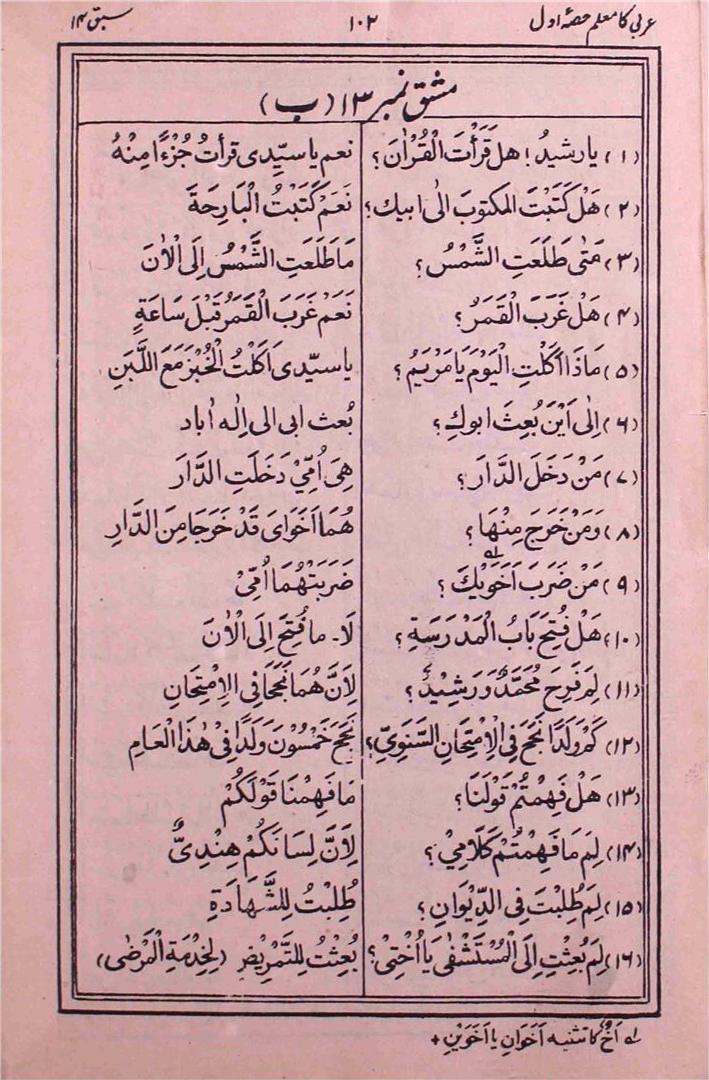 عربی کا معلم حصہٴ اول ۱۰۲ سبق ۱۴
مشق نمبر ۱۳ (ب)
(۱) يا رشيدُ! هل قَرَأْتَ الْقُرْاٰنَ؟ نعم يا سيِّدى قرأتُ جُزْءًا مِنْهُ
(۲) هَلْ كَتَبْتَ المكتوبَ الٰى ابيك؟ نَعَمْ كَتَبْتُ الْبَارِحَةَ
(۳) مَتٰى طَلَعَتِ الشَّمْسُ؟ مَا طَلَعَتِ الشَّمْسُ اِلَى الْاٰنَ
(۴) هَلْ غَرَبَ الْقَمَرُ؟ نَعَمْ غَرَبَ الْقَمَرُ قَبْلَ سَاعَةٍ
(۵) مَاذَا اَكَلْتِ الْيَوْمَ يَا مَرْيَمُ؟ يا سيّدى اَكَلْتُ الْخُبْزَ مَعَ اللَّبَنِ
(۶) اِلٰى اَيْنَ بُعِثَ ابوكِ؟ بُعث ابى الى اِلٰه اٰباد
(۷) مَنْ دَخَلَ الدَّارَ؟ هِىَ اُمِّيْ دَخَلَتِ الدَّارَ
(۸) وَمَنْ خَرَجَ مِنْهَا؟ هُمَا اَخَوَاىَ قَدْ خَرَجَا مِنَ الدَّارِ
(۹) مَنْ ضَرَبَ اَخَوَيْكَ؟ ۱ ضَرَبَتْهُمَا اُمِّيْ
(۱۰) هَلْ فُتِحَ بَابُ الْمَدْرَسَةِ؟ لَا۔ ما فُتِحَ اِلَى الْاٰنَ
(۱۱) لِمَ فَرِحَ مُحَمَّدٌ وَ رَشِيْدٌ؟ لِاَنَّ هُمَا نَجَحَا فِى الْاِمْتِحَانِ
(۱۲) كَمْ وَلَدًا نَجَحَ فِى الْاِمْتِحَانِ السَّنَوِيِّ؟ نَجَحَ خَمْسُوْنَ وَلَدًا فِىْ هٰذَا الْعَامِ
(۱۳) هَلْ فَهِمْتُمْ قَوْلَنَا؟ مَا فَهِمْنَا قَوْلَكُمْ
(۱۴) لِمَ مَا فَهِمْتُمْ كَلَامِيْ؟ لِاَنَّ لِسَانَكُمْ هِنْدِىٌّ
(۱۵) لِمَ طُلِبْتَ فِى الدِّيْوَانِ؟ طُلِبْتُ لِلشَّهَادَةِ
(۱۶) لِمَ بُعِثْتِ اِلَى الْمُسْتَشْفٰى يَا اُخْتِىْ؟ بُعِثْتُ لِلتَّمْرِيْضِ (لِخِدْمَةِ الْمَرْضٰى)
۱ اَخٌ کا تثنیہ اَخَوَانِ یا اَخَوَيْنِ +